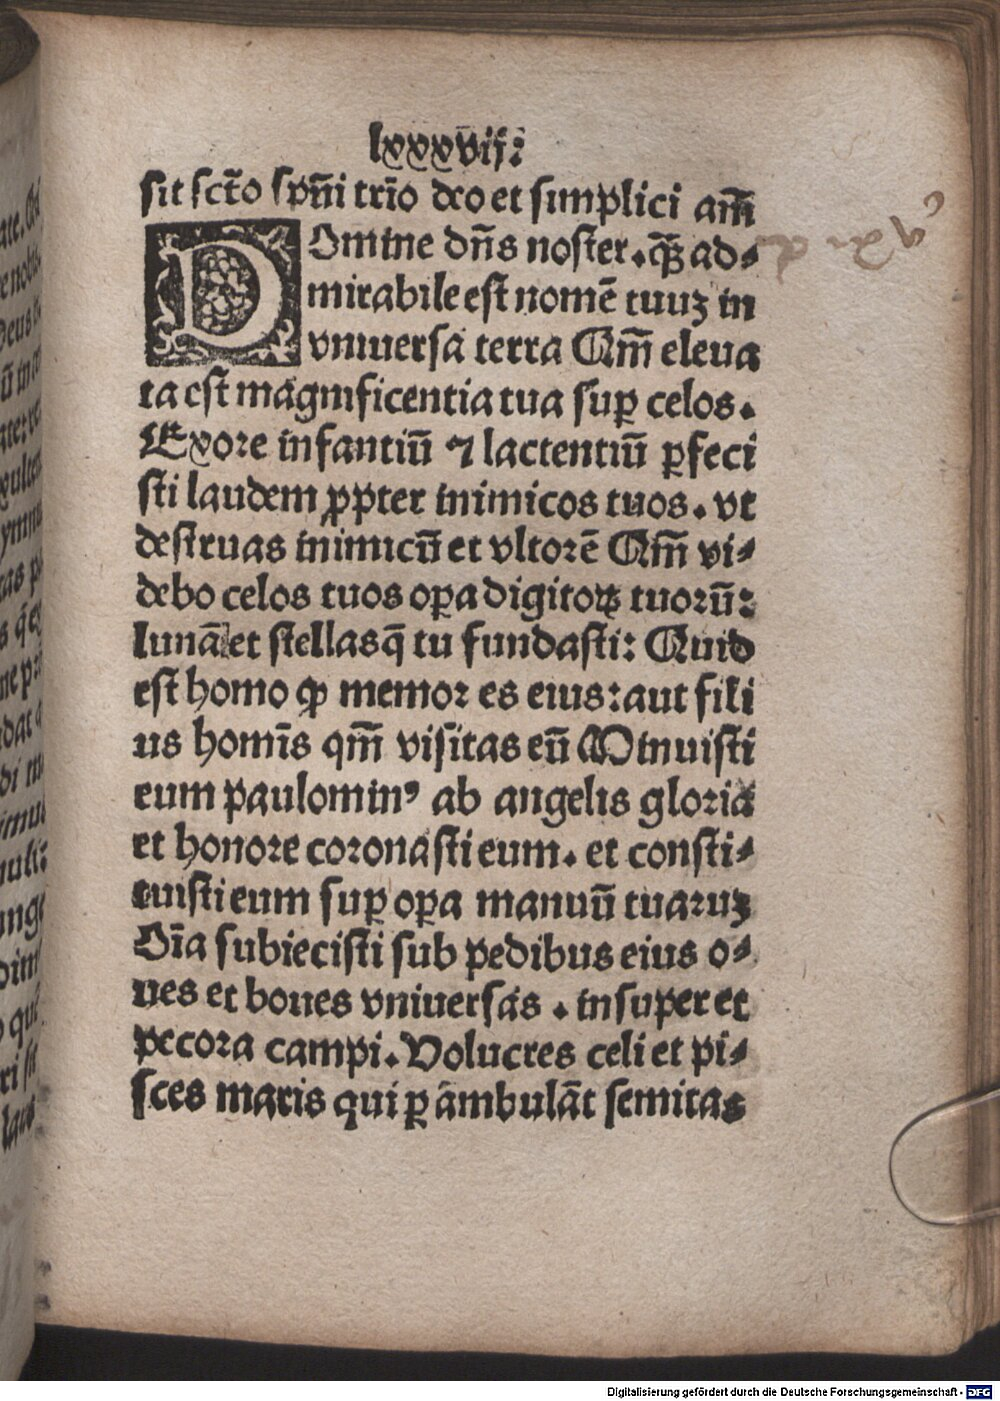 lxxxvij:
sit scto spūi trīo deo et simplici am̄
DOmine dn̄s noster. qꝫ ad⸗
mirabile est nomē tuuꝫ in
vniuersa terra Qm̄ eleua
ta est magnificentia tua suꝑ celos.
Exore infantiū ⁊ lactentiū ꝑfeci
sti laudem ꝓpter inimicos tuos. vt
destruas inimicū et vltorē Qm̄ vi⸗
debo celos tuos oꝑa digitoꝝ tuorū:
lunā et stellas q̄ tu fundasti: Quid
est homo ꝙ memor es eius: aut fili
us homīs qm̄ visitas eū Minuisti
eum paulominꝰ ab angelis gloria
et honore coronasti eum. et consti⸗
tuisti eum suꝑ oꝑa manuū tuaruꝫ
Oīa subiecisti sub pedibus eius o⸗
ues et boues vniuersas. insuper et
pecora campi. Volucres celi et pi⸗
sces maris qui ꝑ ambulāt semitas
Digitalisierung gefördert durch die Deutsche Forschungsgemeinschaft - DFG